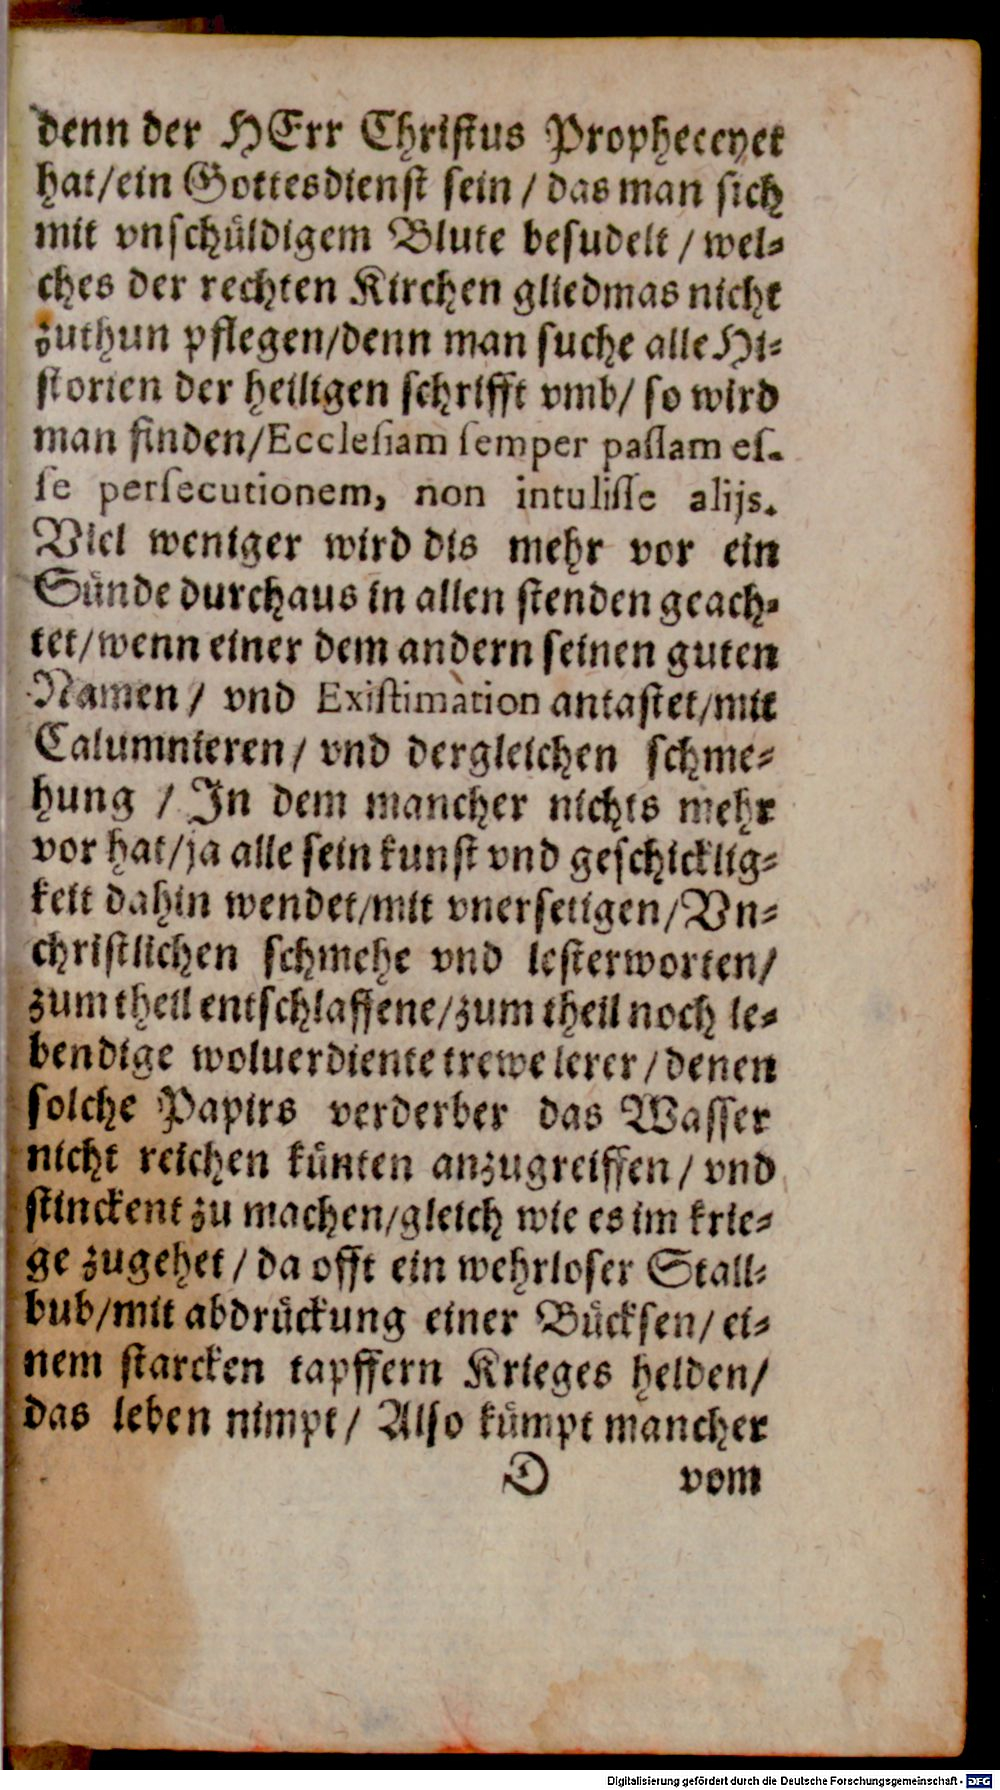 denn der HErr Christus Propheceyet
hat/ein Gottesdienst sein / das man sich
mit vnschüldigem Blute besudelt / wel-
ches der rechten Kirchen gliedmas nicht
zuthun pflegen/denn man suche alle Hi-
storien der heiligen schrifft vmb/ so wird
man finden/Ecclesiam semper passam es-
se persecutionem, non intulisse alijs.
Viel weniger wird dis mehr vor ein
Sünde durchaus in allen stenden geach-
tet/wenn einer dem andern seinen guten
Namen / vnd Existimàtion antastet/mit
Calumnieren/ vnd dergleichen schme-
hung / In dem mancher nichts mehr
vor hat/ja alle sein kunst vnd geschicklig-
keit dahin wendet/mit vnersetigen/Vn-
christlichen schmehe vnd lesterworten/
zum theil entschlaffene/zum theil noch le-
bendige woluerdiente trewe lerer / denen
solche Papirs verderber das Wasser
nicht reichen künten anzugreiffen / vnd
stinckent zu machen/gleich wie es im krie-
ge zugehet / da offt ein wehrloser Stall-
bub/mit abdrückung einer Bücksen/ ei-
nem starcken tapffern Krieges helden/
das leben nimpt/ Also kümpt mancher
D vom
Digitalisierung gefördert durch die Deutsche Forschungsgemeinschaft - DFG